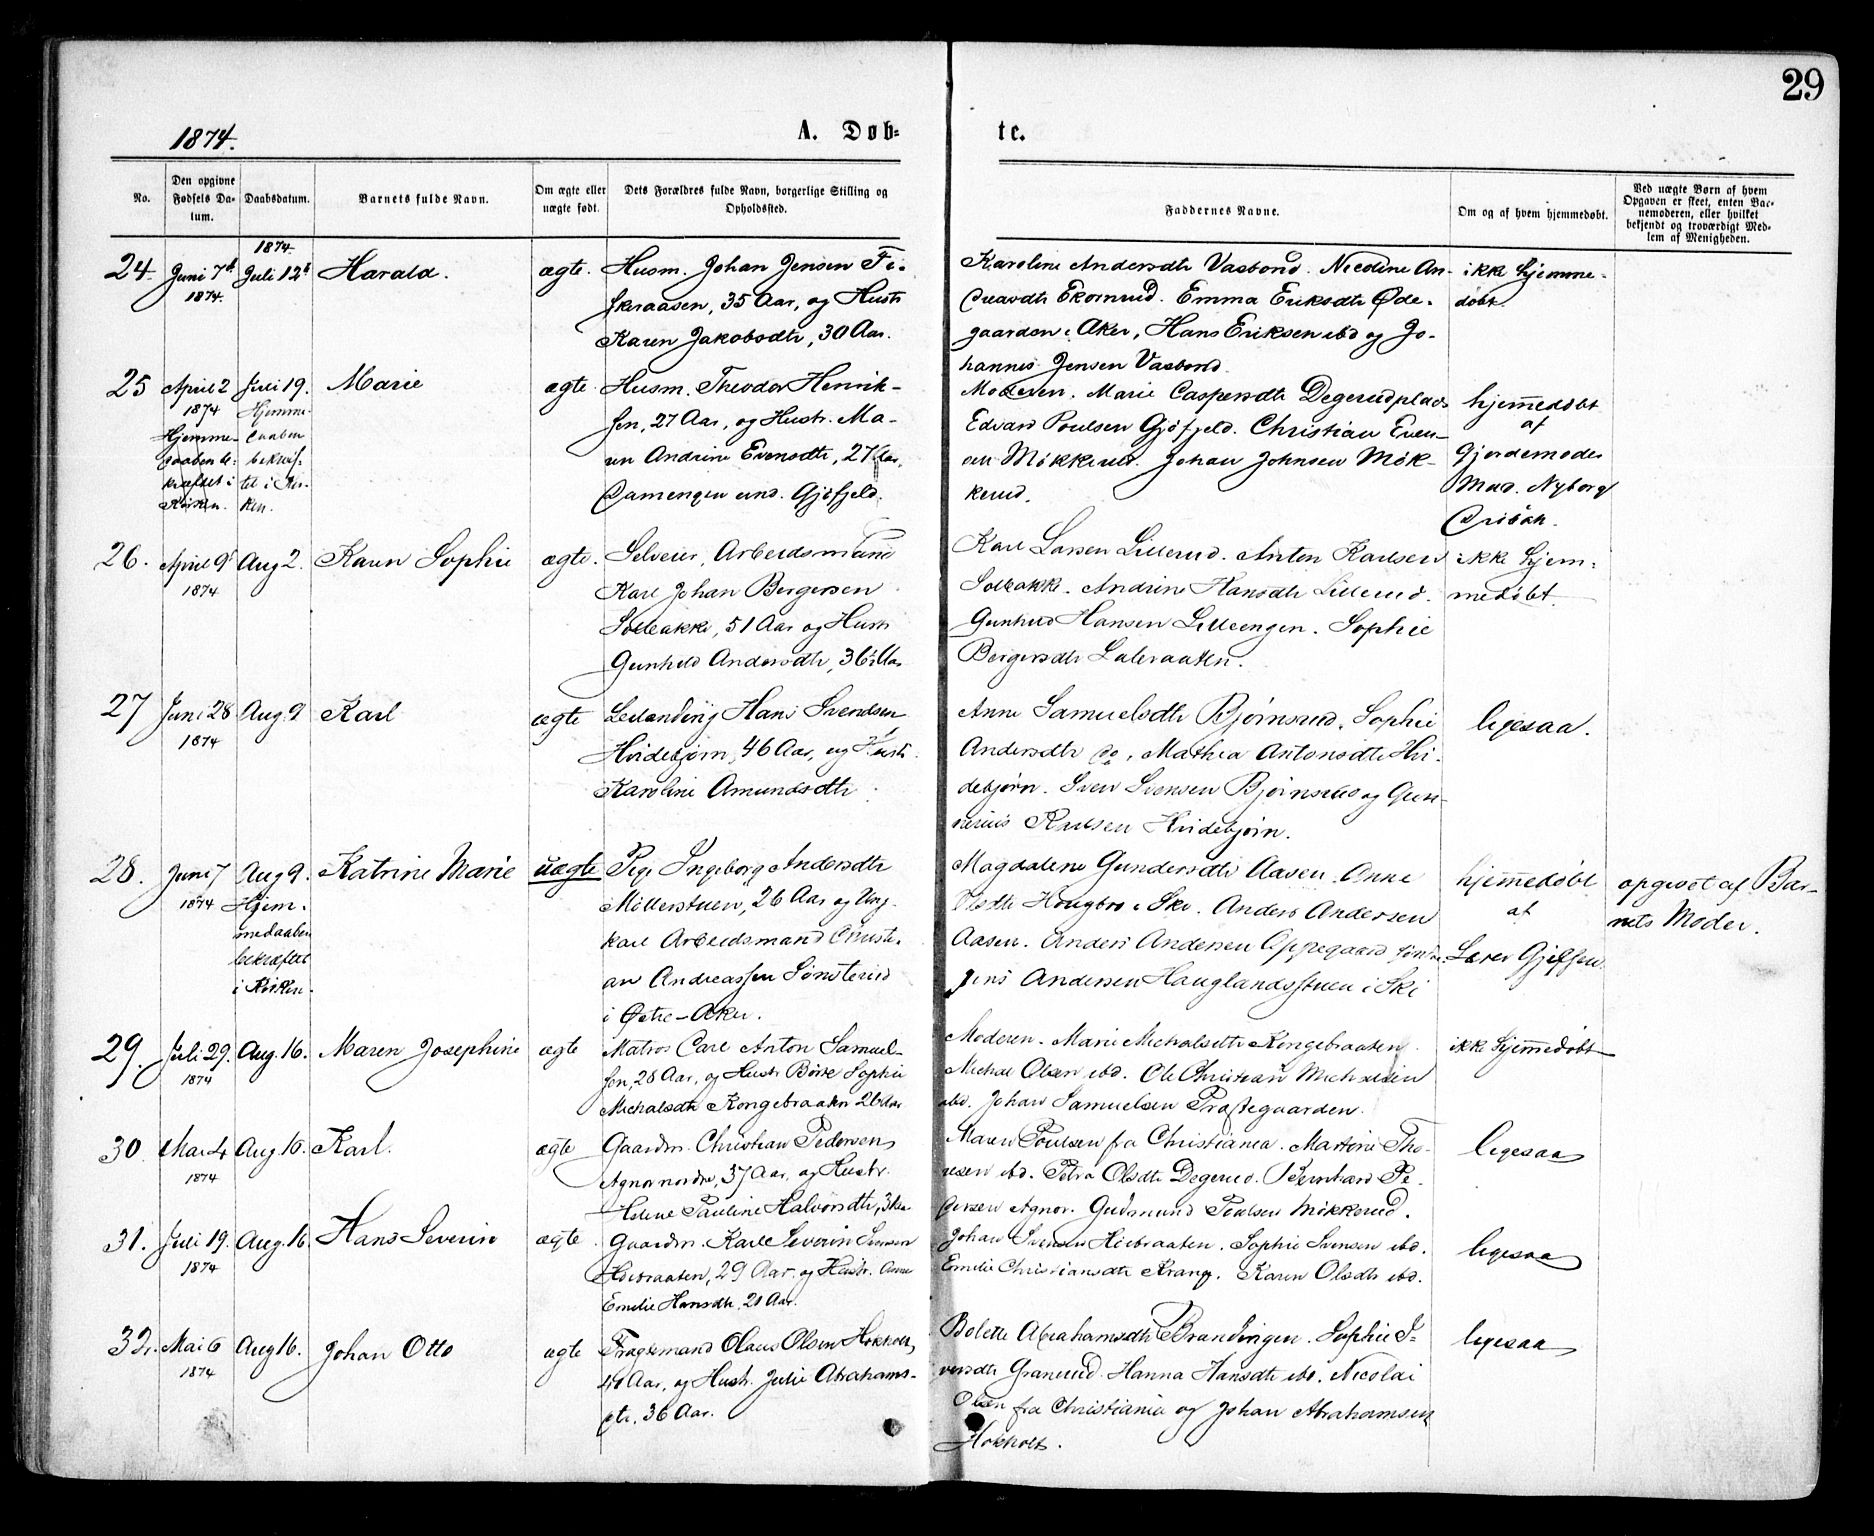 29
1874.
A. Døb-
te.
No.
Den opgivne
Fødsels Da-
tum.
Daabsdatum.
Barnets fulde Navn.
Om ægte eller
uægte født.
Dets Forældres fulde Navn, borgerlige Stilling og
Opholdssted.
Faddernes Navne.
Om og af hvem hjemmedøbt.
Ved uægte Børn af hvem
Opgaven er skeet, enten Bar-
nemoderen, eller hvilket
bekjendt og troværdigt Med-
lem af Menigheden.
24.
Juni 7de
1874.
1874.
Juli 12te
Harald.
ægte.
Husm. Johan Jensen Fi-
skeraasen, 35 Aar, og Hustr
Karen Jakobsdtr, 30 Aar.
Karoline Andersdtr Vasbond. Nicoline An-
dreasdtr Ekornrud. Emma Eriksdtr Øde-
gaarden i Aker, Hans Eriksen ibd og Jo-
hannes Jensen Vasbond.
ikke hjemme-
døbt.
25
April 2
1874
Hjemme-
daaben be-
kræftet i
Kirken.
Juli 19.
Hjemme-
daaben
bekræf-
tet i Kir-
ken.
Marie
ægte.
Husm. Theodor Henrik-
sen, 27 Aar, og Hustr. Ma-
ren Andrine Evensdtr, 27 Aar,
Damengen und. Gjøfjeld.
Moderen. Marie Caspersdtr Degerudplads
Edvard Poulsen Gjøfjeld. Christian Even-
sen Mökkerud. Johan Johnsen Møk-
kerud.
hjemmedøbt
af
Gjordemoder
Mad. Nyborg
Drøbak.
26.
April 9de
1874
Aug 2.
Karen Sophie
ægte.
Selveier, Arbeidsmand
Karl Johan Bergersen
Solbakke, 51 Aar og Hustr
Gunhild Andersdtr, 36 Aar
Karl Larsen Lillerud. Anton Karlsen
Solbakke. Andrine Hansdtr Lillerud.
Gunhild Hansen Lilleengen. Sophie
Bergersdtr
ikke hjem-
medøbt.
27
Juni 28
1874
Aug. 9
Karl
ægte
Leilending Hans Svendsen
Hvidebjørn, 46 Aar, og Hustr.
Karoline Amundsdtr
Anne Samuelsdtr Bjørnsrud. Sophie
Andersdtr do, Mathea Antonsdtr Hvi-
debjørn. Sven Svensen Bjørnsrud og Gun-
nerius Karlsen Hvidebjørn.
ligesaa.
28.
Juni 7
1874
Aug 9.
Hjem-
medaaben
bekræftet
i Kirken.
Katrine Marie
uægte
Pige Ingeborg Andersdtr
Möllerstuen, 26 Aar og Ung-
karl Arbeidsmand Christi-
an Andreassen Sönsterud
i Østre-Aker.
Magdalene Gundersdtr Aasen. Anne
Olsdtr Haugbro i Ski. Anders Andersen
Aasen. Anders Andersen Oppegaard
Jens Andersen Hauglandsstuen i Ski
hjemmedøbt
af
Lærer Gjessen
opgivet af Bar-
nets Moder.
29.
Juli 29.
1874
Aug. 16.
Maren Josephine
ægte
Matros Carl Anton Samuel-
sen, 28 Aar, og Hustr Börte Sophie
Michalsdtr Kongebraaten 26 Aar
Moderen. Marie Michalsdtr Kongebraaten
Michal Olsen ibd. Ole Christian Michalsen
ibd. Johan Samuelsen Præstegaarden.
ikke hjemmedøbt
30.
Mai 4
1874
Aug. 16.
Karl.
ægte
Gaardm. Christian Pedersen
Agnor nordre, 37 Aar, og Hustr.
Helene Pauline Halvorsdtr,
Maren Poulsen fra Christiania. Martine Tho-
resen ibd. Petra Olsdtr Degerud. Bernhard Pe-
dersen Agnor. Gudmund Poulsen Mökkerud.
ligesaa
31.
Juli 19.
1874
Aug. 16
Hans Severin
ægte.
Gaardm. Karl Severin Svensen
Hvidbraaten, 29 Aar og Hustr. Anne
Emilie Hansdtr, 21 Aar.
Johan Svensen Hvidbraaten. Sophie Svensen ibd.
Emilie Christiansdtr Krange. Karen Olsdtr ibd.
ligesaa
32.
Mai 6
1874
Aug 16.
Johan Otto
ægte
Fragtemand Olaus Olsen Hokholt,
41 Aar, og Hustr. Julie Abrahams-
dtr. 36 Aar.
Bolette Abrahamsdtr Brandingen. Sophie I-
versdtr Granerud. Hanna Hansdtr ibd. Nicolai
Olsen fra Christiania og Johan Abrahamsen
Hokholt.
ligesaa